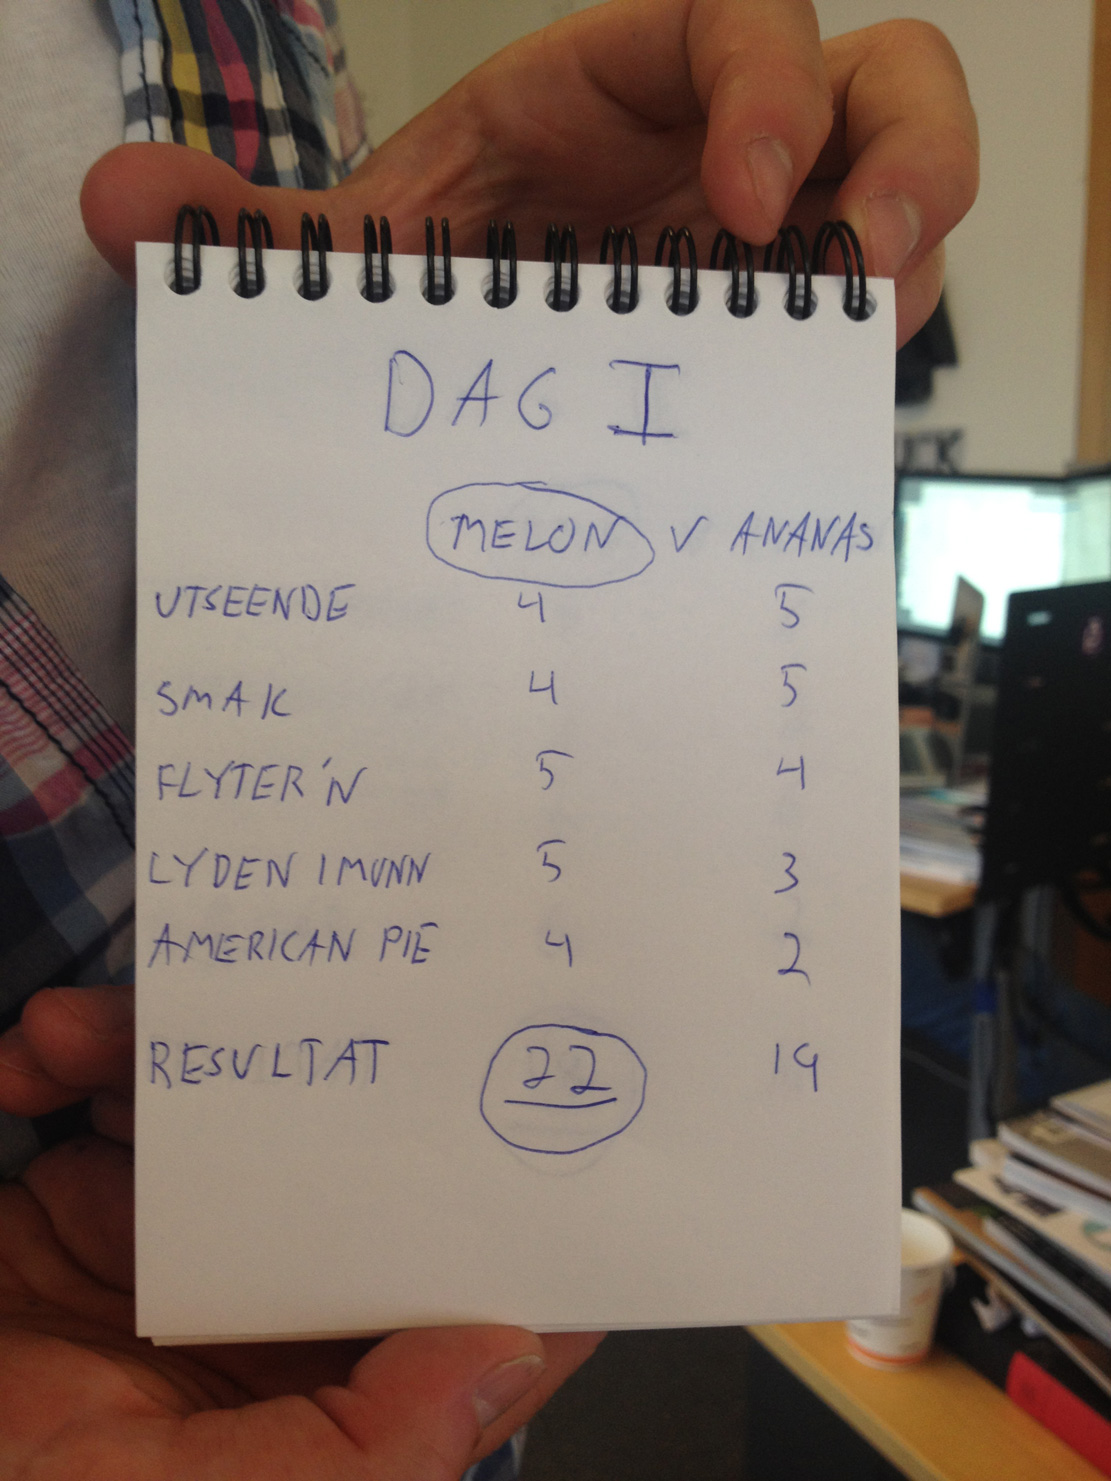 DAG I
MELON V ANANAS
UTSEENDE 4 5
SMAK 4 5
FLYTER'N 5 4
LYDEN I MUNN 5 3
AMERICAN PIE 4 2
RESULTAT 22 19